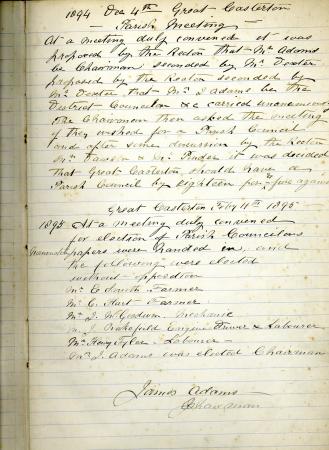 1894 Dec 4th Great Casterton
Parish Meeting —
At a meeting duly convened it was
proposed by the Rector that Mr Adams
be Chairman, seconded by Mr Dexter
proposed by the Rector seconded by
Mr Dexter that Mr J Adams be the
District Councillor &c carried unanimous
The Chairman then asked the meeting
if they wished for a Parish Council
and after some discussion by the Rector
Mr Dawson & Mr Pinder it was decided
that Great Casterton should have a
Parish Council by eighteen for five against
Great Casterton Feby 11th 1895
1895 At a Meeting duly convened
for election of Parish Councilors
papers were handed in, and
the following were elected
without opposition
Mr C Smith Farmer
Mr C. Hart — Farmer
Mr J. W. Goodwin Mechanic
J. Wakefield Engine Driver & Labourer
Mr Henry Tyler — Labourer —
Mr J. Adams was elected Chairman
James Adams
Chairman